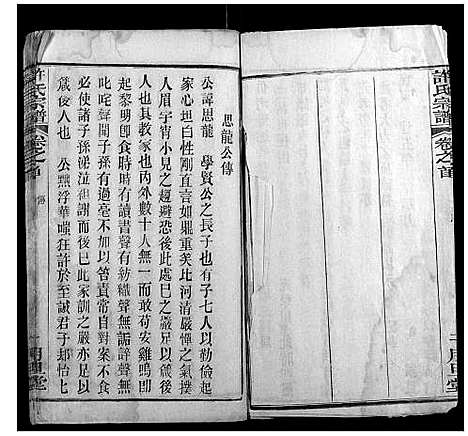 許氏宗譜
卷之首
思龍公傳
公諱思龍　學賢公之長子也有子七人以勤儉起
家心坦白性剛直言如鼎重笑比河清嚴憚之氣撲
人眉宇宵小見之趨避恐後此處己之嚴足以儀後
人也其教家也丙外數十人無一而敢苟安雞鳴即
起黎明卽食時時有讀書聲有紡織聲無詬誶聲無
叱咤聲閒子孫有過毫不加以笞責常自對案不食
必使諸子孫涕泣祖謝而後已此家訓之嚴亦足以
儀後人也　公黜浮華嗤狂許於至誠君子却怡七
許氏宗譜
卷之首
傳
一